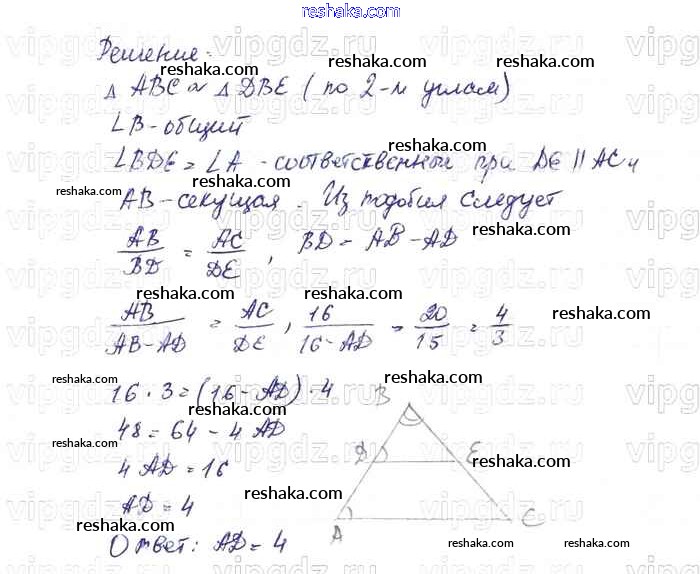 reshaka.com
Решение:
Δ ABC ∾ Δ DBE (по 2-м углам)
∠B - общий
∠BDE = ∠A - соответственный при DE || AC и
AB - секущая. Из подобия следует
AB/BD = AC/DE, BD = AB - AD
AB/(AB-AD) = AC/DE, 16/(16-AD) = 20/15 = 4/3
16 · 3 = (16 - AD) · 4
48 = 64 - 4 AD
4 AD = 16
AD = 4
Ответ: AD = 4
B
D E
A C
reshaka.com
vipgdz.ru